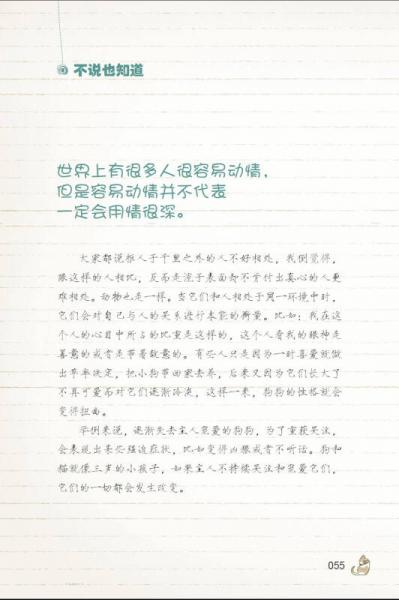 不说也知道
世界上有很多人很容易动情，
但是容易动情并不代表
一定会用情很深。
大家都说拒人于千里之外的人不好相处，我倒觉得，
跟这样的人相比，反而是流于表面却不肯付出真心的人更
难相处。动物也是一样。当它们和人相处于同一环境中时，
它们会对自己与人的关系进行本能的衡量。比如：我在这
个人的心目中所占的比重是这样的，这个人看我的眼神是
善意的或者是带着敌意的。有些人只是因为一时喜爱就做
出草率决定，把小狗带回家去养，后来又因为它们长大了
不再可爱而对它们逐渐冷淡，这样一来，狗狗的性格就会
变得扭曲。
举例来说，逐渐失去主人宠爱的狗狗，为了重获关注，
会表现出某些强迫症状，比如变得凶狠或者不听话。狗和
猫就像三岁的小孩子，如果主人不持续关注和宠爱它们，
它们的一切都会发生改变。
055